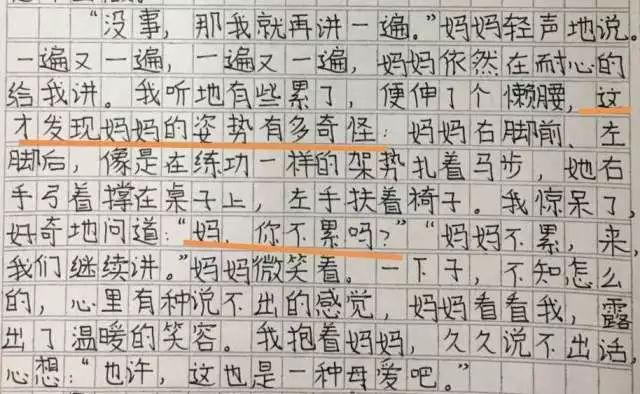 “没事，那我就再讲一遍。”妈妈轻声地说。
一遍又一遍，一遍又一遍，妈妈依然在耐心的
给我讲。我听地有些累了，便伸了个懒腰，这
才发现妈妈的姿势有多奇怪：妈妈右脚前、左
脚后，像是在练功一样的架势扎着马步，她右
手弓着撑在桌子上，左手扶着椅子。我惊呆了，
好奇地问道：“妈，你不累吗？”“妈妈不累，来，
我们继续讲。”妈妈微笑着。一下子，不知怎么
的，心里有种说不出的感觉，妈妈看看我，露
出了温暖的笑容。我抱着妈妈，久久说不出话，
心想：“也许，这也是一种母爱吧。”